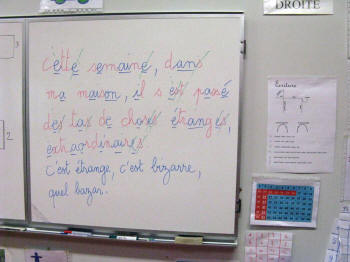 DROITE
Cette semaine, dans
ma maison, il s'est passé
des tas de choses étranges,
extraordinaires
c'est étrange, c'est bizarre,
quel bazar.
Ecriture
2